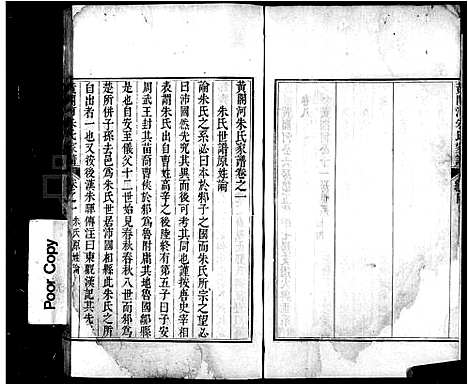 黃關河朱氏家譜卷之一
朱氏世譜原姓論
論朱氏之系必曰本於邾子之國而朱氏所宗之望必
曰沛國然先究其異而後可求其同也謹按唐史宰相
表謂朱氏出自曹姓高陽之後陸終有第五子曰子安
周武王封其苗裔曹挾於邾為魯附庸其地魯國鄒縣
是也自安至儀父十二世始見春秋春秋八世而邾為
楚所併子孫去邑為朱氏世居沛國相縣此朱氏之所
自出者一也又按後漢朱驛傳注曰東觀漢記其先
卷之一 朱氏原姓論
Poor Copy